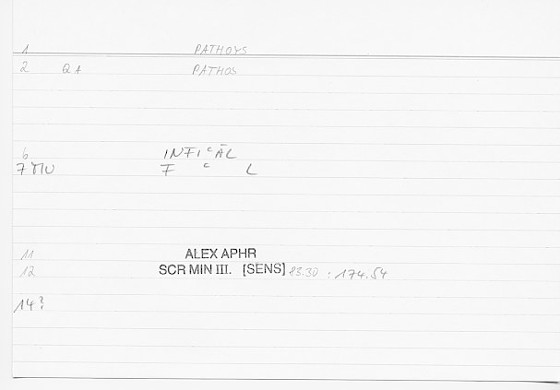 1 PATHOYS
2 QA PATHOS
6 INFI c ĀL
7 F c L
11 ALEX APHR
12 SCR MIN III. [SENS] 83.30 : 174.54
14?